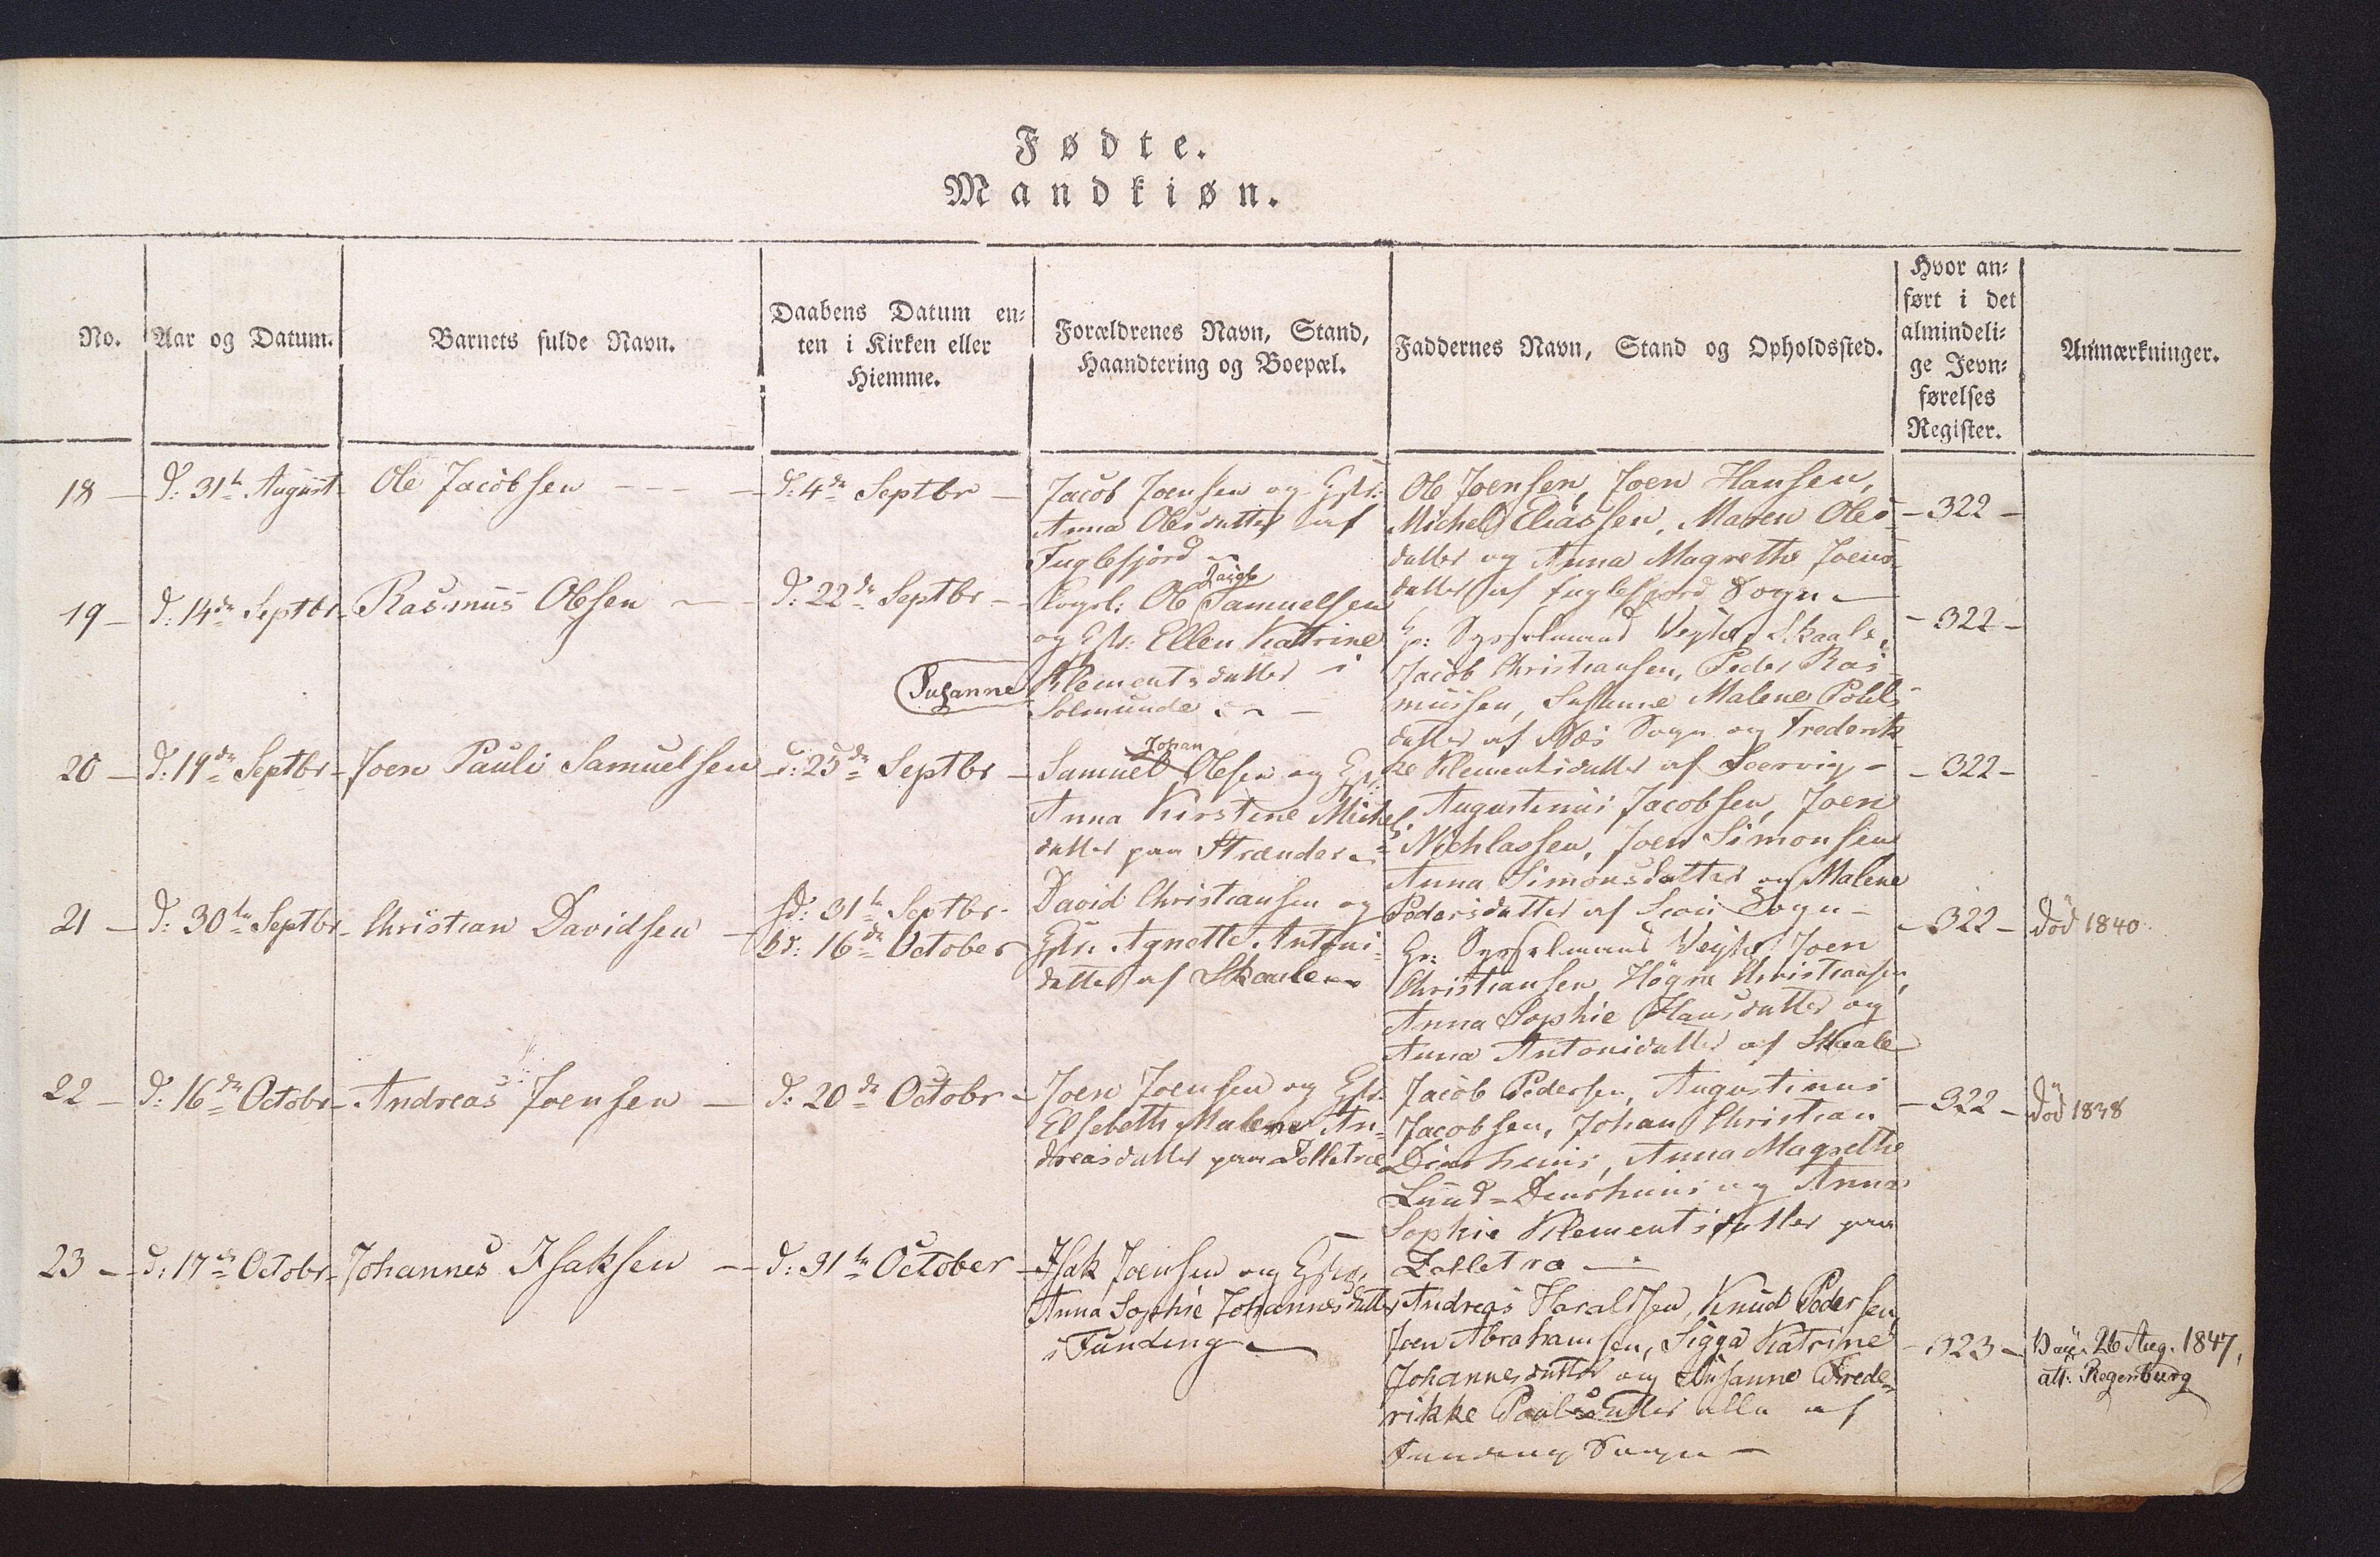 Fødte.
Mandkiøn.
No.
Aar og Datum.
Barnets fulde Navn.
Daabens Datum en-
ten i Kirken eller
Hiemme.
Forældrenes Navn, Stand,
Haandtering og Boepæl.
Faddernes Navn, Stand og Opholdssted.
Hvor an-
ført i det
almindeli-
ge Jevn-
førelses
Register.
Anmærkninger.
18 –
d: 31te August
Ole Jacobsen – – –
d: 4de Septbr –
Jacob Joensen og Hstr:
Anna Olesdatter af
Fuglefjord
Ole Joensen, Joen Hansen,
Michel Eliassen, Maren Oles-
datter og Anna Magrethe Joens-
datter af Fuglefjord Sogn –
– 322 –
19 –
d: 14de Septbr
Rasmus Olesen –
d: 22de Septbr –
Jacob
Ole Samuelsen
og Hstr: Ellen Katrine
Susanne
Klementsdatter i
Solmunde
Hr: Sysselmand Skaale,
Jacob Christiansen, Peder Ras-
mussen, Susanne Malene Pohls-
datter af Næs Sogn og Frederik-
ke Klementsdatter af Soervig –
– 322 –
20 –
d: 19de Septbr
Joen Pauli Samuelsen
d: 25de Septbr –
Johan
Samuel Olesen og Hstr:
Anna Kirstine Michels-
datter paa Strender
Augustinus Jacobsen, Joen
Nichlassen, Joen Simonsen
Anna Simonsdatter og Malene
Pedersdatter af Sogn –
– 322 –
21 –
d: 30te Septbr
Christian Davidsen –
fd: 31te Septbr –
bd: 16de October
David Christiansen og
Hstr: Agnette Antoni-
datter af Skaale
Hr: Sysselmand Joen
Christiansen, Högne Christiansen,
Anna Sophie Hansdatter og
Anna Antonidatter af Skaale
– 322 –
död 1840.
22 –
d: 16de Octobr
Andreas Joensen –
d: 20de Octobr –
Joen Joensen og Hstr:
Elsebeth Malene An-
dreasdatter paa Zelletræ
Jacob Pedersen, Augustinus
Jacobsen, Johan Christian
Anna Magrethe
Lund og Anna
Sophie Klementsdatter paa
Zelletra –
– 322 –
död 1838
23 –
d: 17de Octobr
Johannes Isaksen –
d: 31te October
Isak Joensen og Hstr:
Anna Sophie Johannesdatter
i Funding
Andreas Haraldsen, Knud Pedersen,
Joen Abrahamsen, Sigga Katrine
Johannesdatter og Susanne Frede-
rikke Poulsdatter alle af
Funding Sogn –
– 323 –
26 Aug. 1847,
att: Regenburg